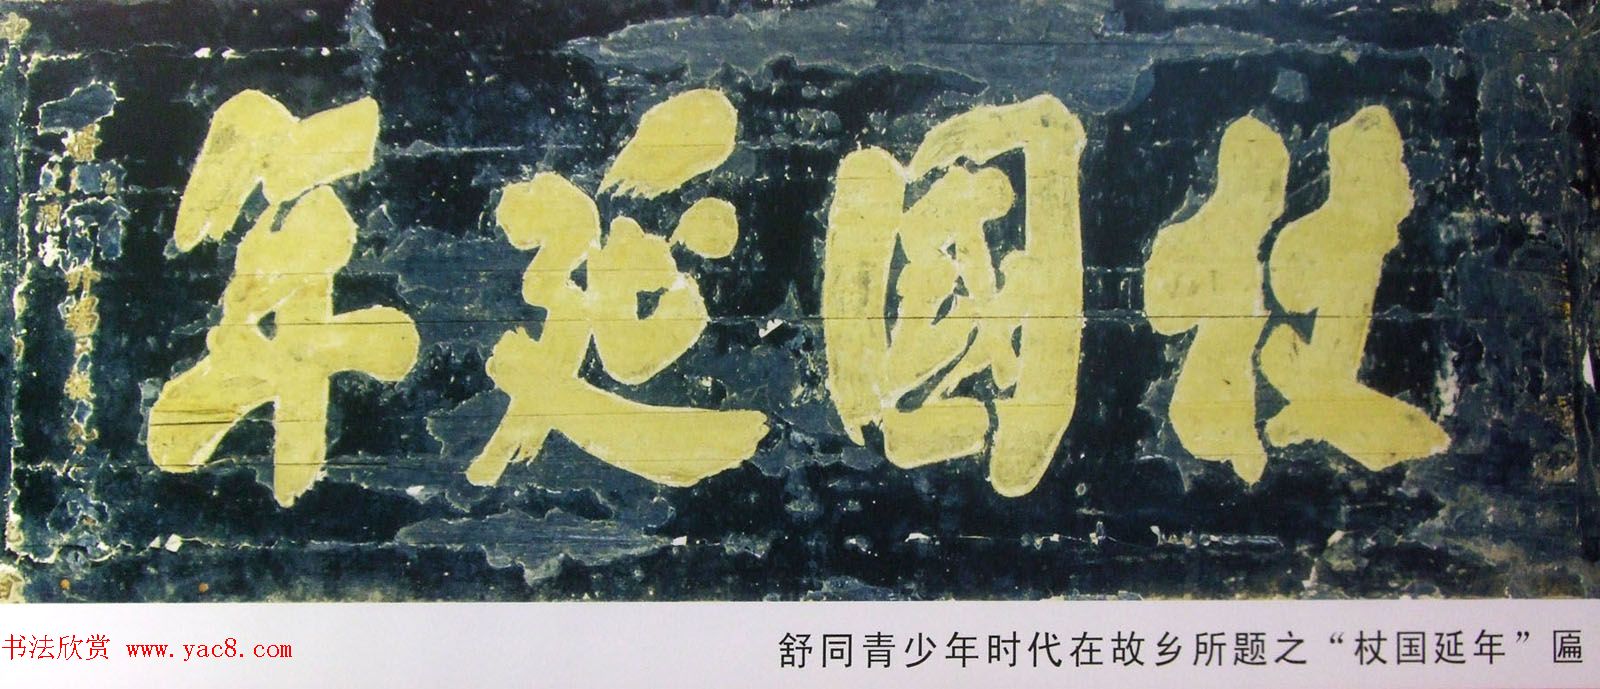 杖國延年
舒同青少年时代在故乡所题之“杖国延年”匾
书法欣赏 www.yac8.com